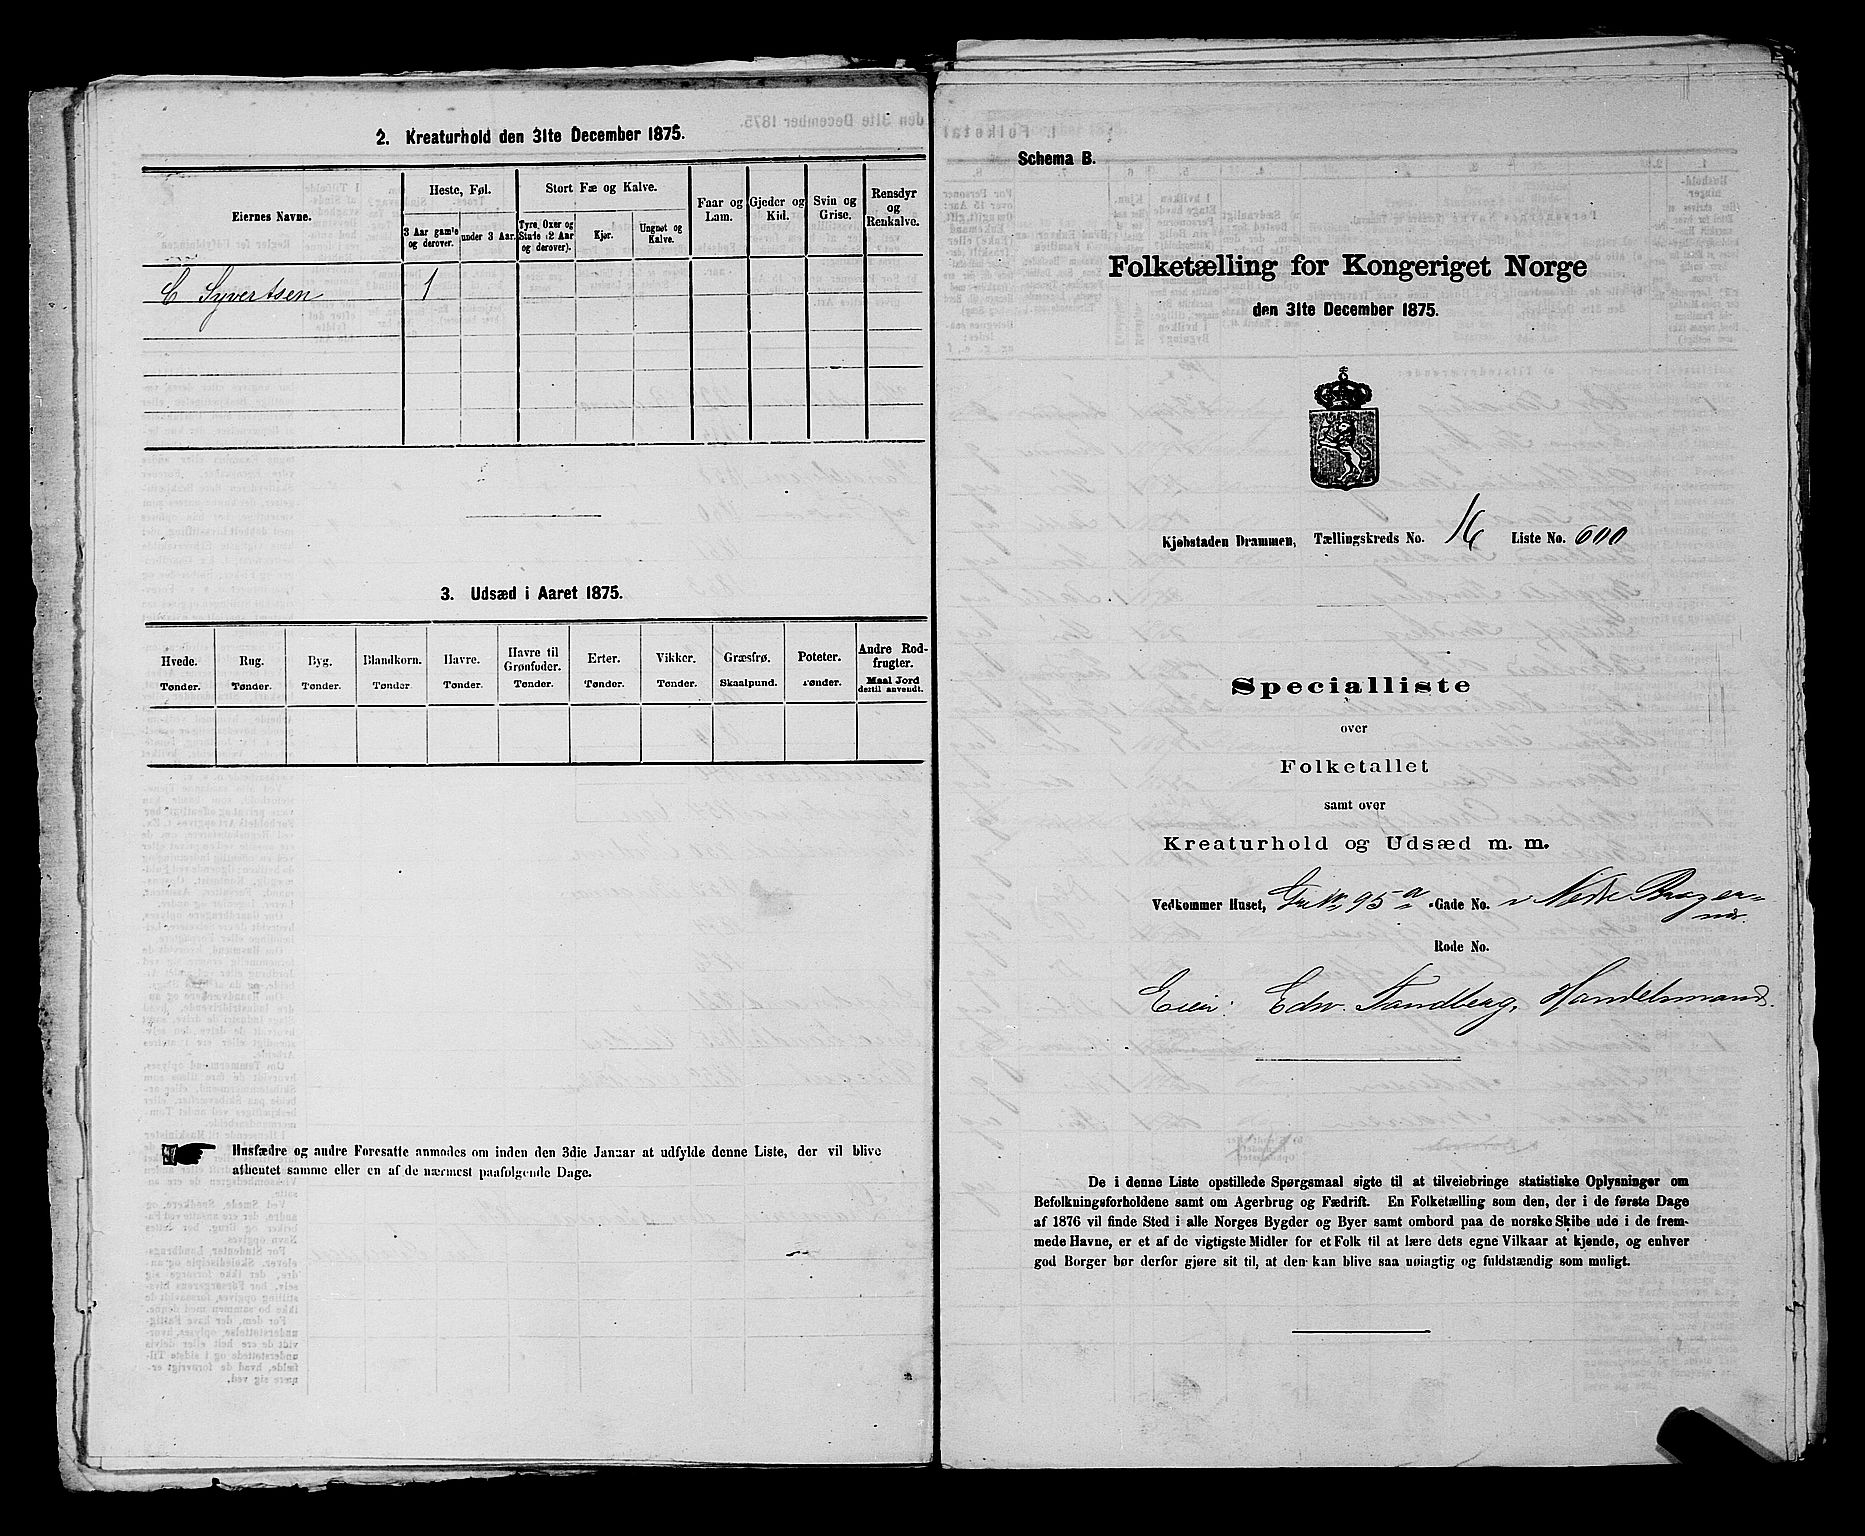 2. Kreaturhold den 31te December 1875.
Eiernes Navne.
Heste, Føl.
Stort Fæ og Kalve.
Faar og Lam.
Gjeder og Kid.
Svin og Grise.
Rensdyr og Renkalve.
3 Aar gamle og derover.
under 3 Aar.
Tyre, Oxer og Stude (2 Aar og derover).
Kjør.
Ungnøt og Kalve.
C Syvertsen 1
3. Udsæd i Aaret 1875.
Hvede. Rug. Byg. Blandkorn. Havre. Havre til Grønfoder. Erter. Vikker. Græsfrø. Poteter. Andre Rodfrugter.
Tønder. Tønder. Tønder. Tønder. Tønder. Tønder. Tønder. Tønder. Skaalpund. Tønder. Maal Jord dertil anvendt.
Husfædre og andre Foresatte anmodes om inden den 3die Januar at udfylde denne Liste, der vil blive
afhentet samme eller en af de nærmest paafølgende Dage.
Schema B.
Folketælling for Kongeriget Norge
den 31te December 1875.
Kjøbstaden Drammen, Tællingskreds No. 16 Liste No. 600
Specialliste
over
Folketallet
samt over
Kreaturhold og Udsæd m. m.
Vedkommer Huset, 95 a Gade No. Nedre Brager-
næs
Rode No.
Eier: Edw. Tandberg, Handelsmand.
De i denne Liste opstillede Spørgsmaal sigte til at tilveiebringe statistiske Oplysninger om
Befolkningsforholdene samt om Agerbrug og Fædrift. En Folketælling som den, der i de første Dage
af 1876 vil finde Sted i alle Norges Bygder og Byer samt ombord paa de norske Skibe ude i de frem-
mede Havne, er et af de vigtigste Midler for et Folk til at lære dets egne Vilkaar at kjende, og enhver
god Borger bør derfor gjøre sit til, at den kan blive saa nøiagtig og fuldstændig som muligt.